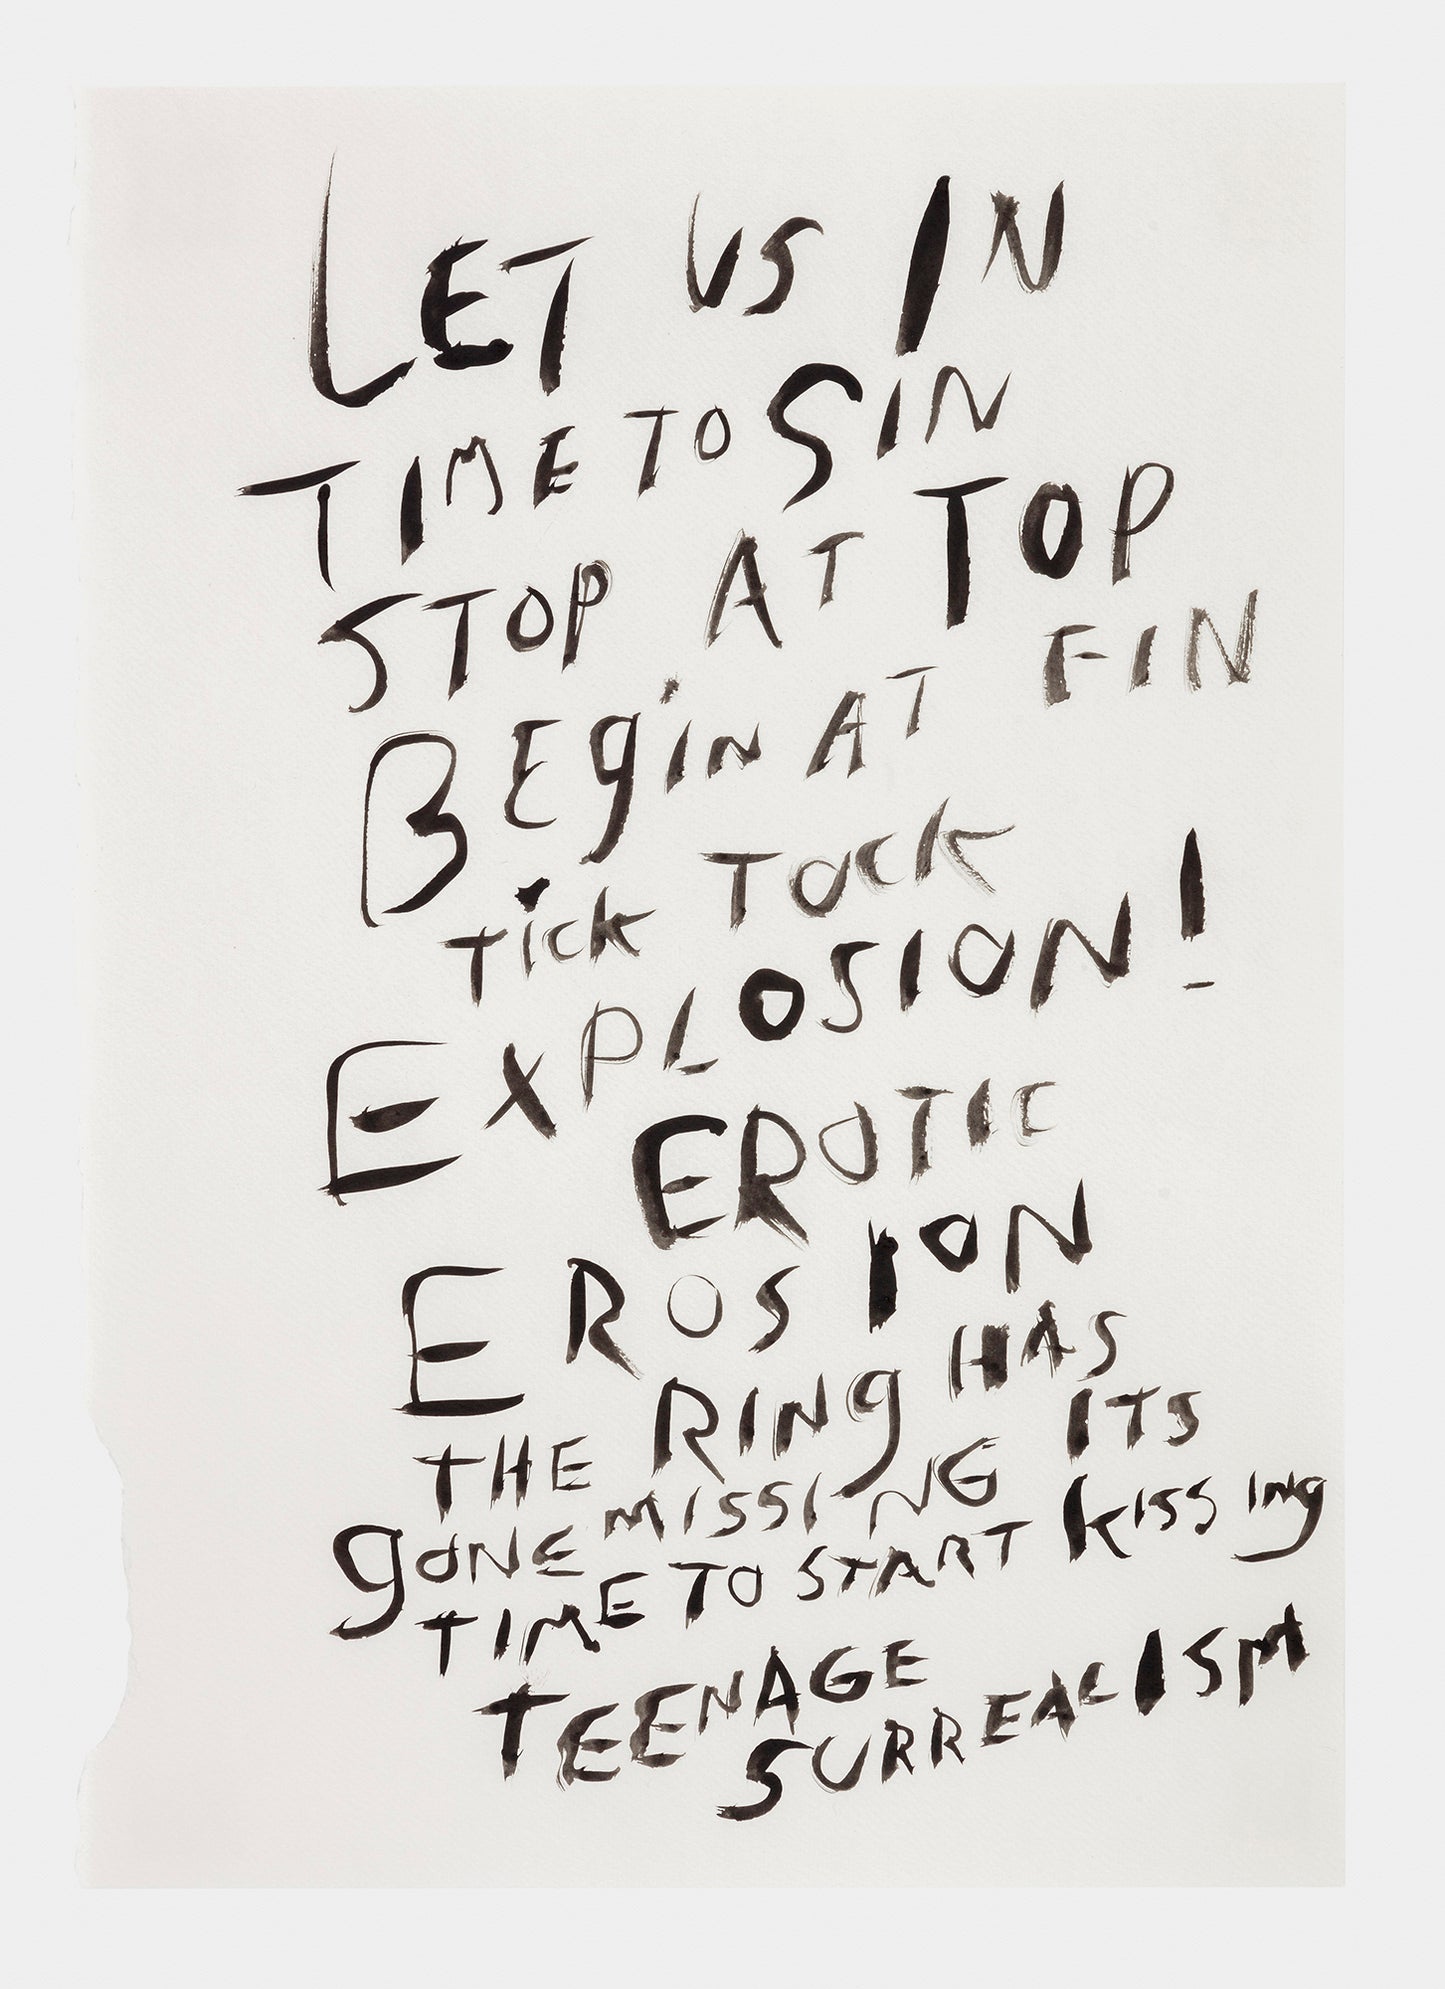 LET US IN
TIME TO SIN
STOP AT TOP
BEgiN AT FIN
TicK TOCK
EXPLOSION!
EROTIC
EROSION
THE RINg HAS
gONE MISSING ITS
TIME TO START KISSINg
TEENAGE
SURREALISM